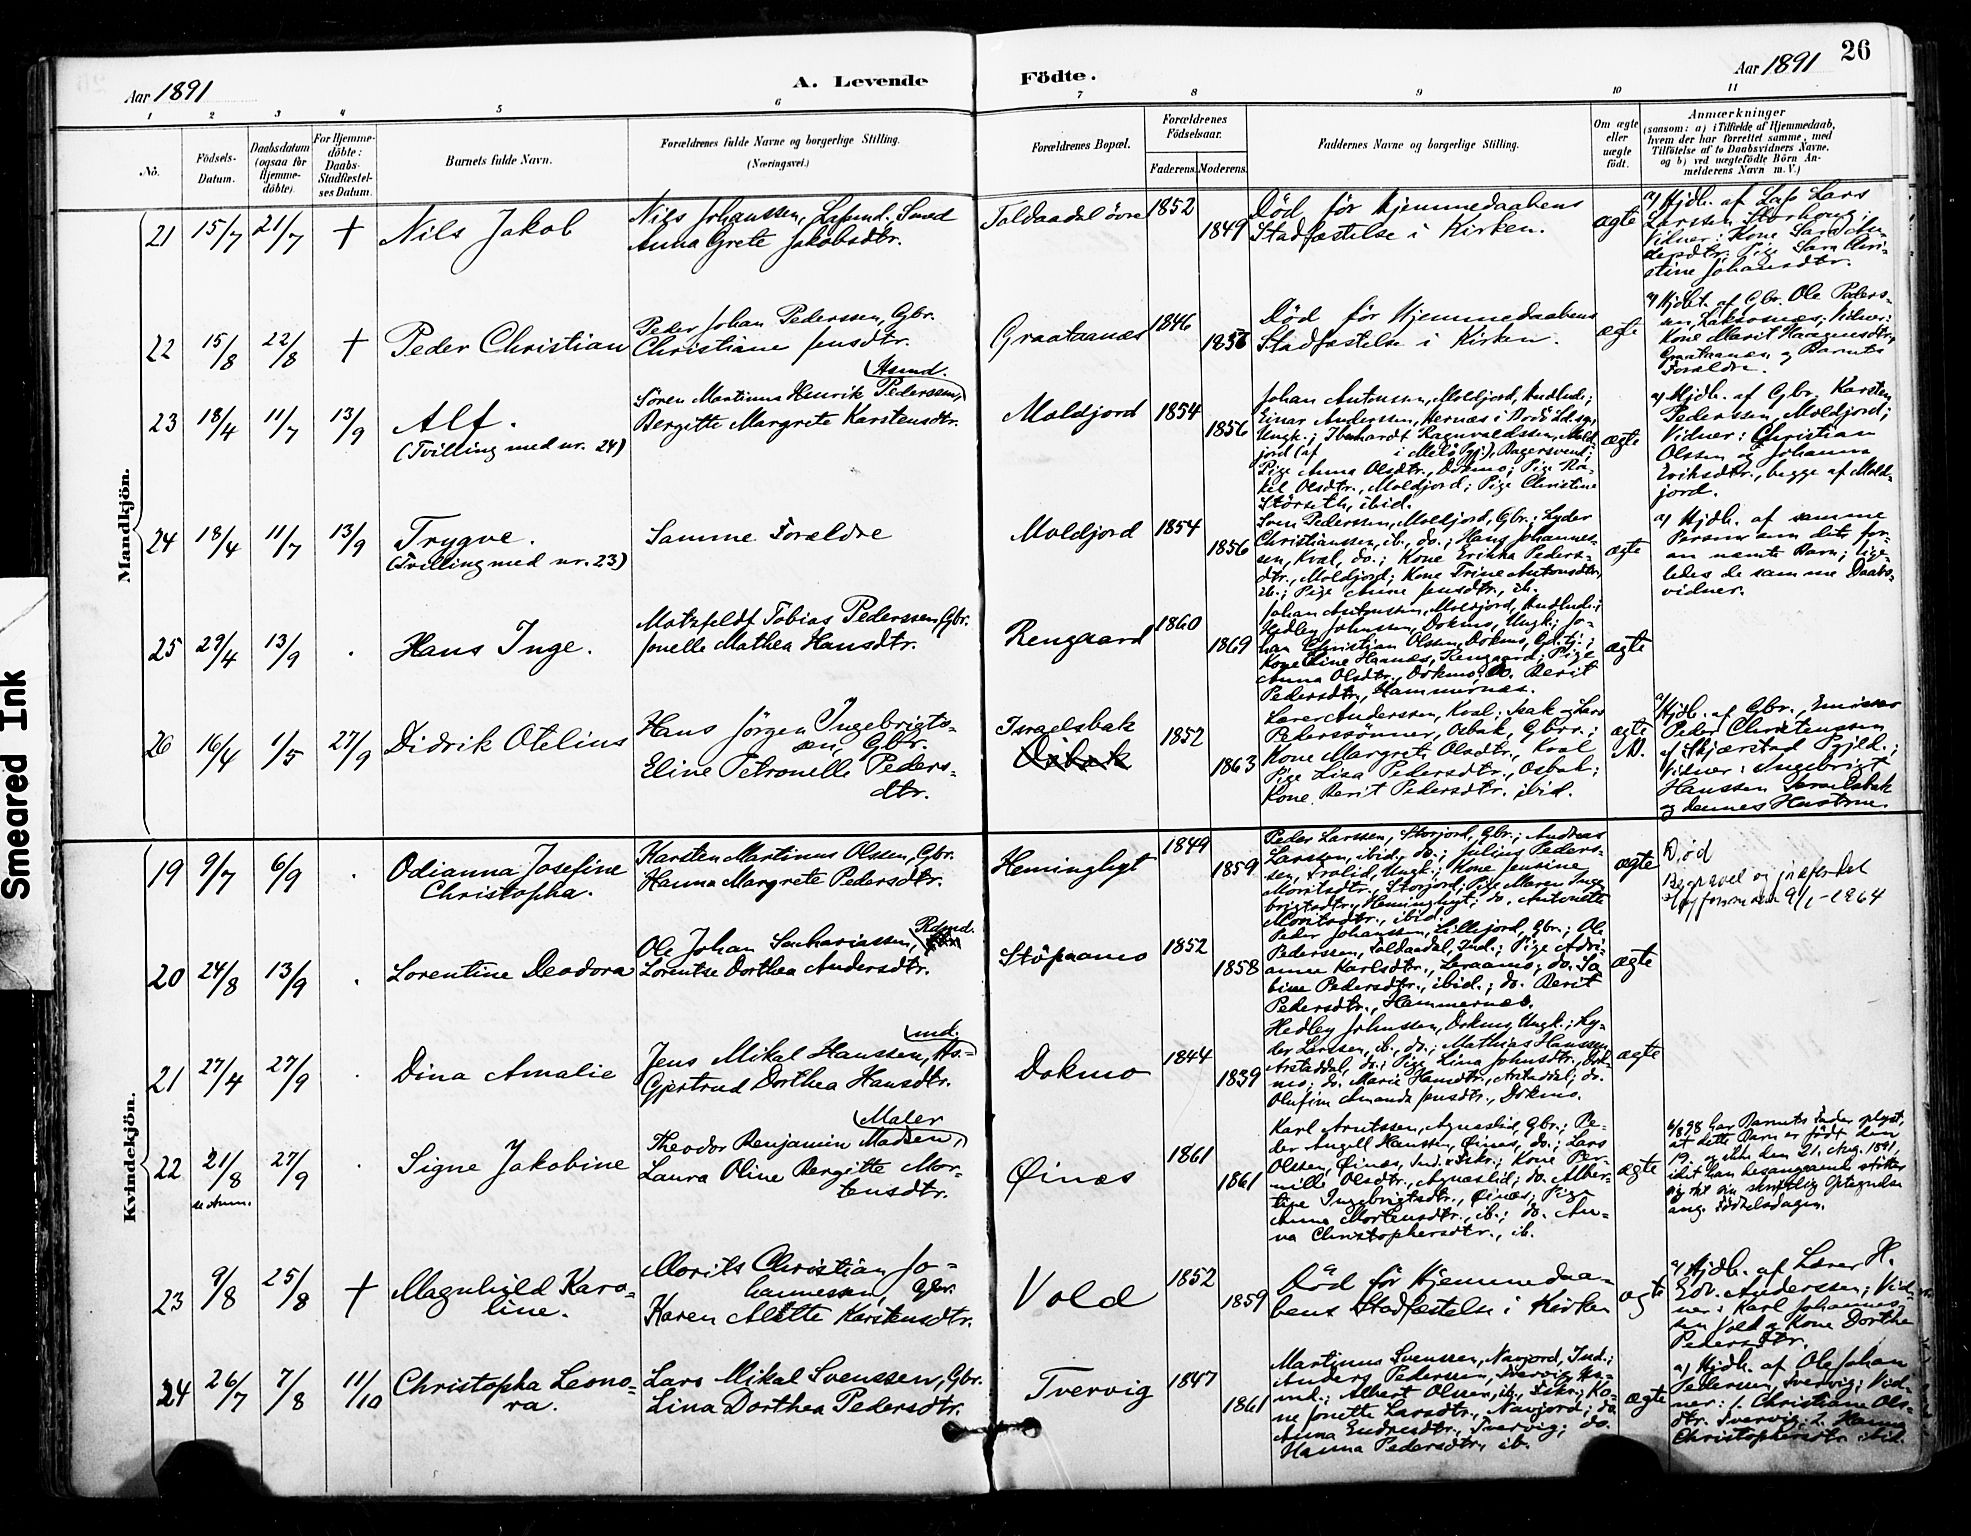 26
Aar 1891
A. Levende
Födte.
Aar 1891
1 2 3 4 5 6 7 8 9 10 11
No.
Födsels-
Datum.
Daabsdatum
(ogsaa for
Hjemme-
döbte).
For Hjemme-
döbte:
Daabs-
Stadfæstel-
ses Datum.
Barnets fulde Navn.
Forældrenes fulde Navne og borgerlige Stilling.
(Næringsvei.)
Forældrenes Bopæl.
Forældrenes
Födselsaar.
Faderens. Moderens.
Faddernes Navne og borgerlige Stilling.
Om ægte
eller
uægte
födt.
Anmærkninger
(saasom: a) i Tilfælde af Hjemmedaab,
hvem der har forrettet samme, med
Tilföielse af to Daabsvidners Navne,
og b) ved uægtefödte Börn An-
melderens Navn m. V.)
Mandkjön.
21 15/7 21/7 † Nils Jakob
Nils Johanssen, Lapmd. Smed
Anna Grete Jakobsdtr.
Toldaadal övre 1852 1849
Död för Hjemmedaabens
Stadfæstelse i Kirken.
ægte
a) Hjdb. af Lap Lars
Larssen Storhaug;
Vidner: Kone Sara An-
dersdtr. Pige Sara Chri-
stine Johansdtr.
22 15/8 22/8 † Peder Christian
Peder Johan Pederssen, Gbr.
Christiane Jensdtr.
Graataanæs 1846
Död för Hjemmedaabens
Stadfæstelse i Kirken.
ægte
a) Hjdb. af Gbr. Ole Peders-
sen, Laksosnæs; Vidner:
Kone Marit
Graataanæs og Barnets
Forældre.
23 18/4 11/7 13/9 Alf.
(Tvilling med nr. 24)
Hsmd.
Sören Martinus Henrik Pederssen,
Bergitte Margrete Karstensdtr.
Moldjord 1854 1856
Johan Antonssen, Moldjord, Handlende;
Einar Anderssen, Hernæs i Bodö Ld.sg,
Ungk.; Iberhardt Ragnvaldssen, Mold-
jord (af i Melö Pgj.), Bagersvend;
Pige Anna Olsdtr., Dokmo; Pige Ra-
kel Olsdtr., Moldjord; Pige Christine
Störseth, ibid.
ægte
a) Hjdb. af Gbr. Karsten
Pederssen, Moldjord;
Vidner: Christian
Olssen og Johanna
Eriksdtr., begge af Mold-
jord.
24 18/4 11/7 13/9 Trygve.
(Tvilling med nr. 23)
Samme Forældre
Moldjord 1854 1856
Sven Pederssen, Moldjord, Gbr.; Lyder
Christianssen, ib., do.; Hans Johannes-
sen, Kval, do.; Kone Erikka Peders-
dtr., Moldjord; Kone Trine Antonsdtr.,
ib.; Pige Anne Jensdtr., ib.
ægte
a) Hjdb. af samme
Person som det for-
an nævnte Barn; lige-
ledes de samme Daabs-
vidner.
25 29/4 13/9 . Hans Inge.
Motzfeldt Tobias Pederssen, Gbr.
Jonelle Mathea Hansdtr.
Rengaard 1860 1869
Johan Antonssen, Moldjord, Handlende;
Hedley Johnssen, Dokmo, Ungk.; Jo-
han Christian Olssen, Dokmo,
Kone Eline Haanæs, Rengaard; Pige
Anna Olsdtr., Dokmo; do. Berit
Pedersdtr., Hammernæs.
ægte
26 16/4 1/5 27/9 Didrik Otelius
Hans Jörgen Ingebrigts-
sen, Gbr.
Eline Petronelle Peders-
dtr.
Israelsbak
1852 1863
Lærer Anderssen, Kval; Isak og Lars
Pederssönner, Osbak, Gbrr.;
Kone Margrete Olsdtr., Kval
Pige Lisa Pedersdtr., Osbak;
Kone Berit Pedersdtr. ibid.
ægte
D.
a) Hjdb. af Gbr.
Peder Christenssen
af Skjærstad Pgjld.;
Vidner: Ingebrigt
Hanssen Israelsbak
og dennes Hustru.
Kvindekjön.
19 9/7 6/9 . Odianna Josefine
Christopha.
Karsten Martinus Olssen, Gbr.
Hanna Margrete Pedersdtr.
Hemingligt 1849 1859
Peder Larssen, Storjord, Gbr.; Andreas
Larssen, ibid., do.; Julius Peders-
sen, Trolid, Ungk.; Kone Jensine
Moritsdtr., Storjord; Pige Maren Inge-
brigtsdtr., Hemingligt; do. Antonette
Moritsdtr., ibid.
ægte
Död
20 24/8 13/9 . Lorentine Deodora
Ole Johan Sachariassen,
Lorentse Dorthea Andersdtr.
Stöpaamo 1852 1858
Peder Johanssen, Lillejord, Gbr.; Ole
Pederssen, Toldaadal, Ind.; Pige Adri-
anne Karlsdtr., Leraamo; do. Sa-
bine Pedersdtr., ibid.; do. Berit
Pedersdtr., Hammernæs.
ægte
21 27/4 27/9 . Dina Amalie
Jens Mikal Hanssen, Hs-
md.
Gjertrud Dorthea Hansdtr.
Dokmo 1844 1839
Hedley Johnssen, Dokmo, Ungk.; Ly-
der Larssen, ib., do.; Mathias Hanssen,
Arstaddal, do.; Pige Lina Johnsdtr., Dok-
mo; do. Marie Hansdtr., Arstaddal; do.
Olufine Amanda Jensdtr., Dokmo.
ægte
22 21/8 27/9 . Signe Jakobine
se Anm.
Maler
Theodor Benjamin Madsen,
Laura Oline Bergitte Mor-
tensdtr.
Øinæs 1861 1861
Karl Arntssen, Agnæslid, Gbr.; Pe-
der Angell Hanssen, Øinæs, do.; Lars
Olssen, Øinæs, Ind. & Fskr.; Kone Per-
nille Olsdtr., Agnæslid; do. Alber-
tine Ingebrigtsdtr., Øinæs; Pige
Anna Mortensdtr., ib.; do. An-
na Christophersdtr., ib.
ægte
har Barnets Fader oplyst,
at dette Barn er födt den
19. og ikke den 21. Aug. 1891,
idet han desangaaende støtter
sig til en samtidig Optegnelse
ang. Födselsdagen.
23 9/8 25/8 † Magnhild Karo-
line.
Morits Christian Jo-
hannessen, Gbr.
Karen Alette Karstensdtr.
Vold 1852 1859
Död för Hjemmedaa-
bens Stadfæstelse i Kirken
ægte
a) Hjdb. af Lærer H.
Edv. Anderssen; Vid-
ner: Karl Johannes-
sen Vold og Kone Dorthea
Pedersdtr.
24 26/7 7/8 11/10 Christopha Leono-
ra.
Lars Mikal Svenssen, Gbr.
Lina Dorthea Pedersdtr.
Tvervig 1847 1861
Martinus Svenssen, Navjord, Ind.;
Anders Pederssen, Tvervig, Hs-
md.; Albert Olssen, ib., Fskr.; Ko-
ne Jonette Larsdtr., Navjord; do.
Anna Endresdtr., Tvervig; do.
Hanna Pedersdtr., ib.
ægte
a) Hjdb. af Ole Johan
Pederssen, Tvervig; Vid-
ner: 1. Christiane Ols-
dtr. Tvervig; 2. Hanna
Christophersdtr. ibid.
Smeared Ink